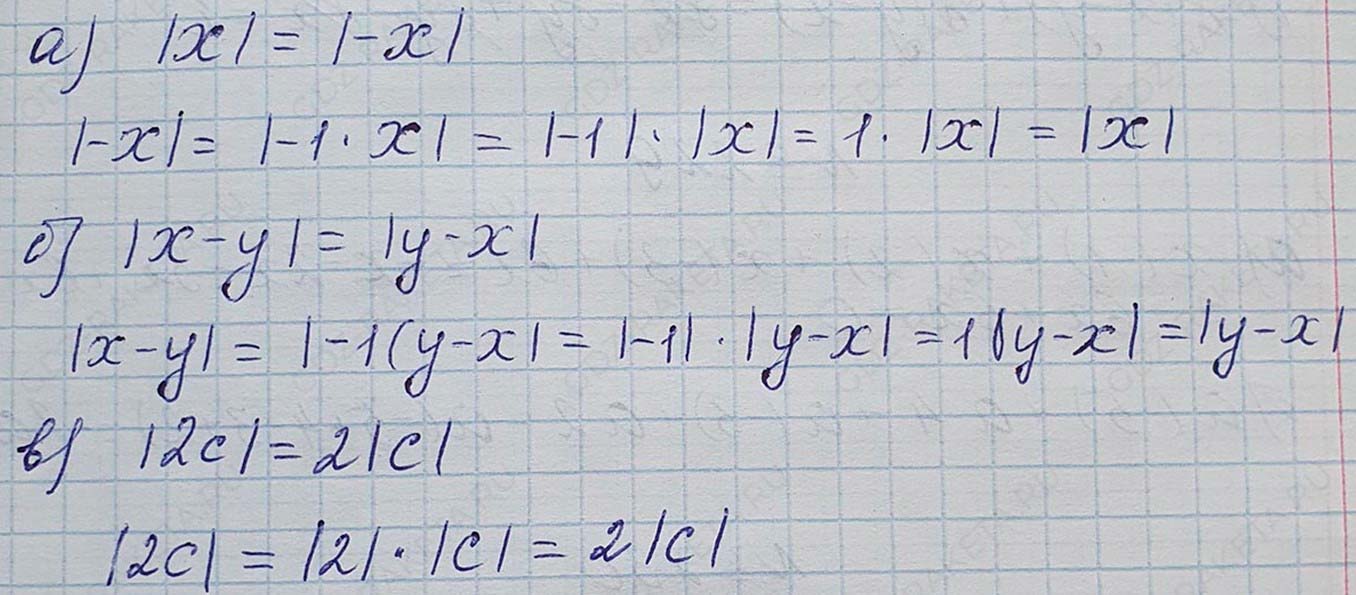 а) |x| = |-x|
|-x| = |-1 · x| = |-1| · |x| = 1 · |x| = |x|
б) |x-y| = |y-x|
|x-y| = |-1(y-x| = |-1| · |y-x| = 1|y-x| = |y-x|
в) |2c| = 2|c|
|2c| = |2| · |c| = 2|c|